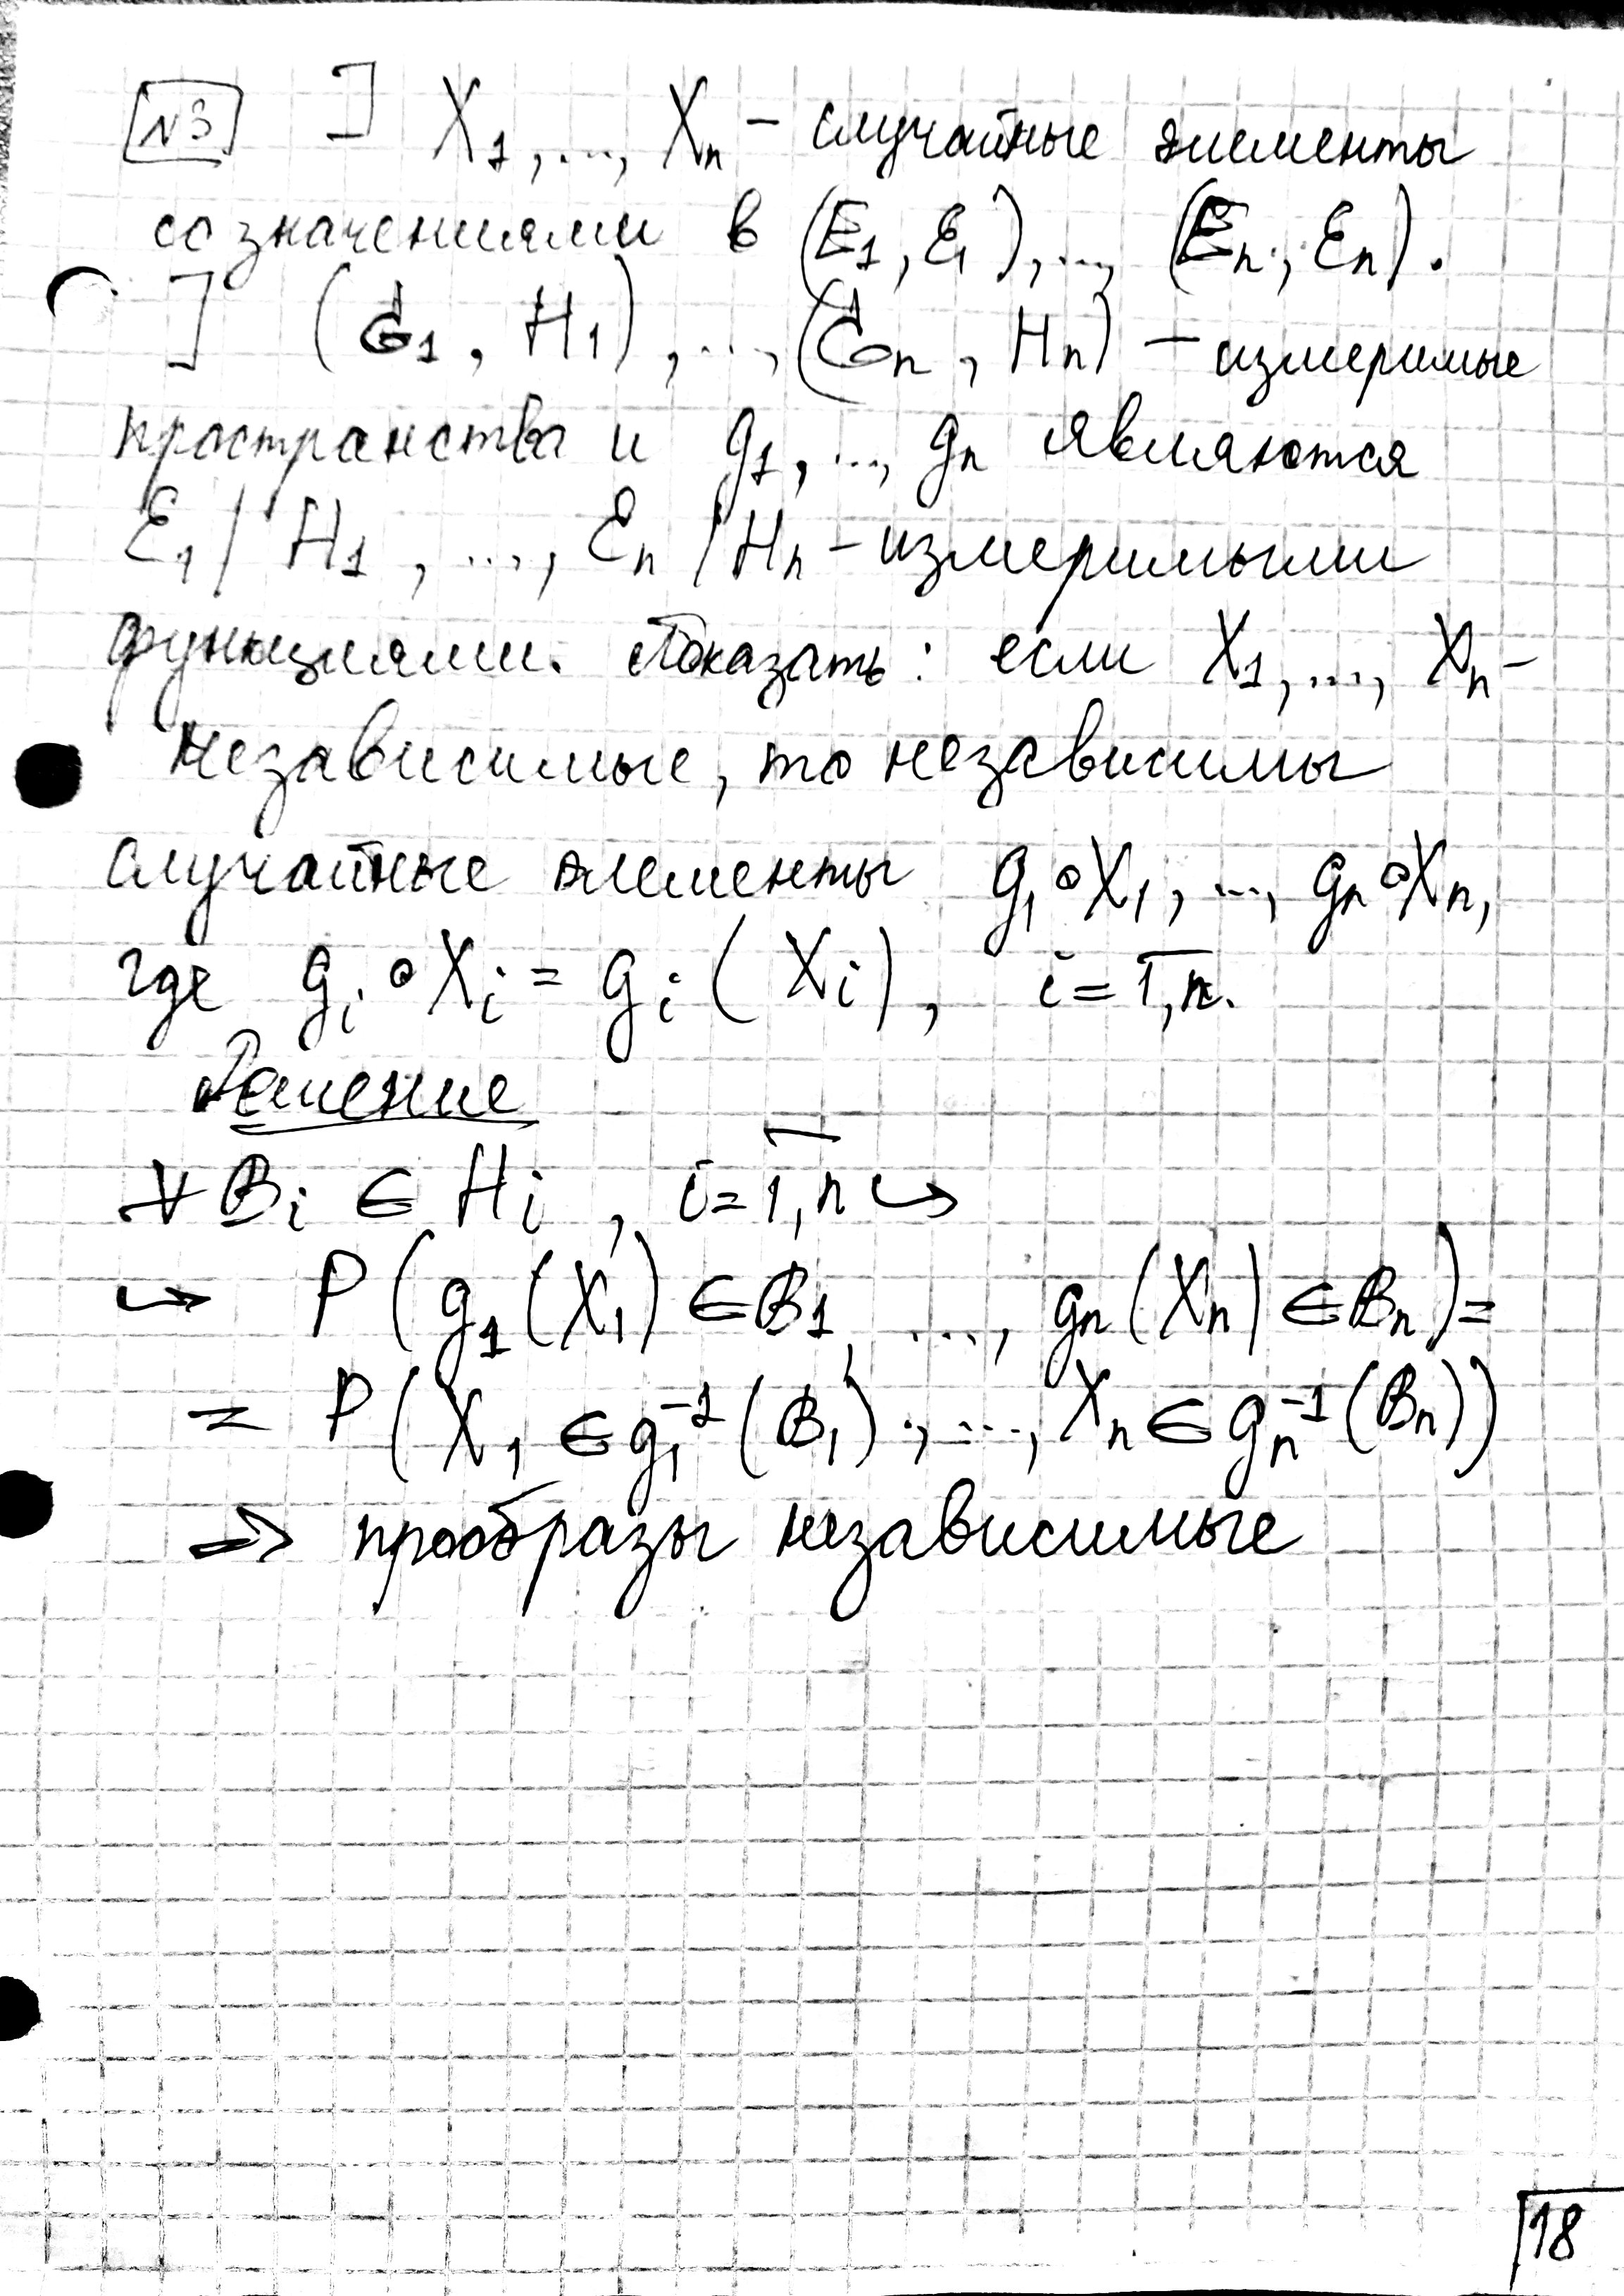 №3 ] X₁, ..., Xₙ – случайные элементы
со значениями в (E₁, ℰ₁), ..., (Eₙ, ℰₙ).
] (G₁, H₁), ..., (Gₙ, Hₙ) – измеримые
пространства и g₁, ..., gₙ являются
ℰ₁/H₁, ..., ℰₙ/Hₙ – измеримыми
функциями. Показать: если X₁, ..., Xₙ –
независимые, то независимы
случайные элементы g₁∘X₁, ..., gₙ∘Xₙ,
где gᵢ∘Xᵢ = gᵢ(Xᵢ), i = 1,n.
Решение
∀ Bᵢ ∈ Hᵢ, i = 1,n ↪
↪ P(g₁(X₁) ∈ B₁, ..., gₙ(Xₙ) ∈ Bₙ) =
= P(X₁ ∈ g₁⁻¹(B₁), ..., Xₙ ∈ gₙ⁻¹(Bₙ))
⇒ прообразы независимые
18